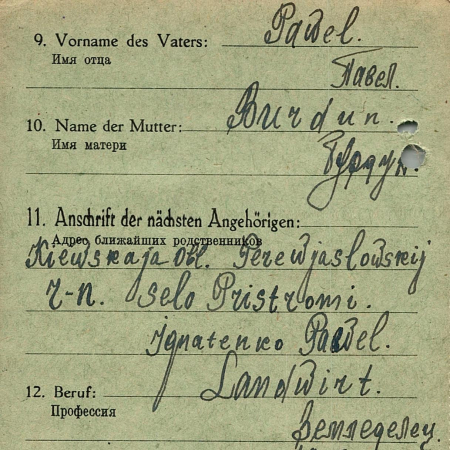 9. Vorname des Vaters: Pawel.
Имя отца
Павел.
10. Name der Mutter: Burdun.
Имя матери
Бурдун.
11. Anschrift der nächsten Angehörigen:
Адрес ближайших родственников
Kiewskaja Obl. Perewjaslowskij
r-n. selo Pristromi.
Ignatenko Pawel.
12. Beruf: Landwirt.
Профессия
земледелец